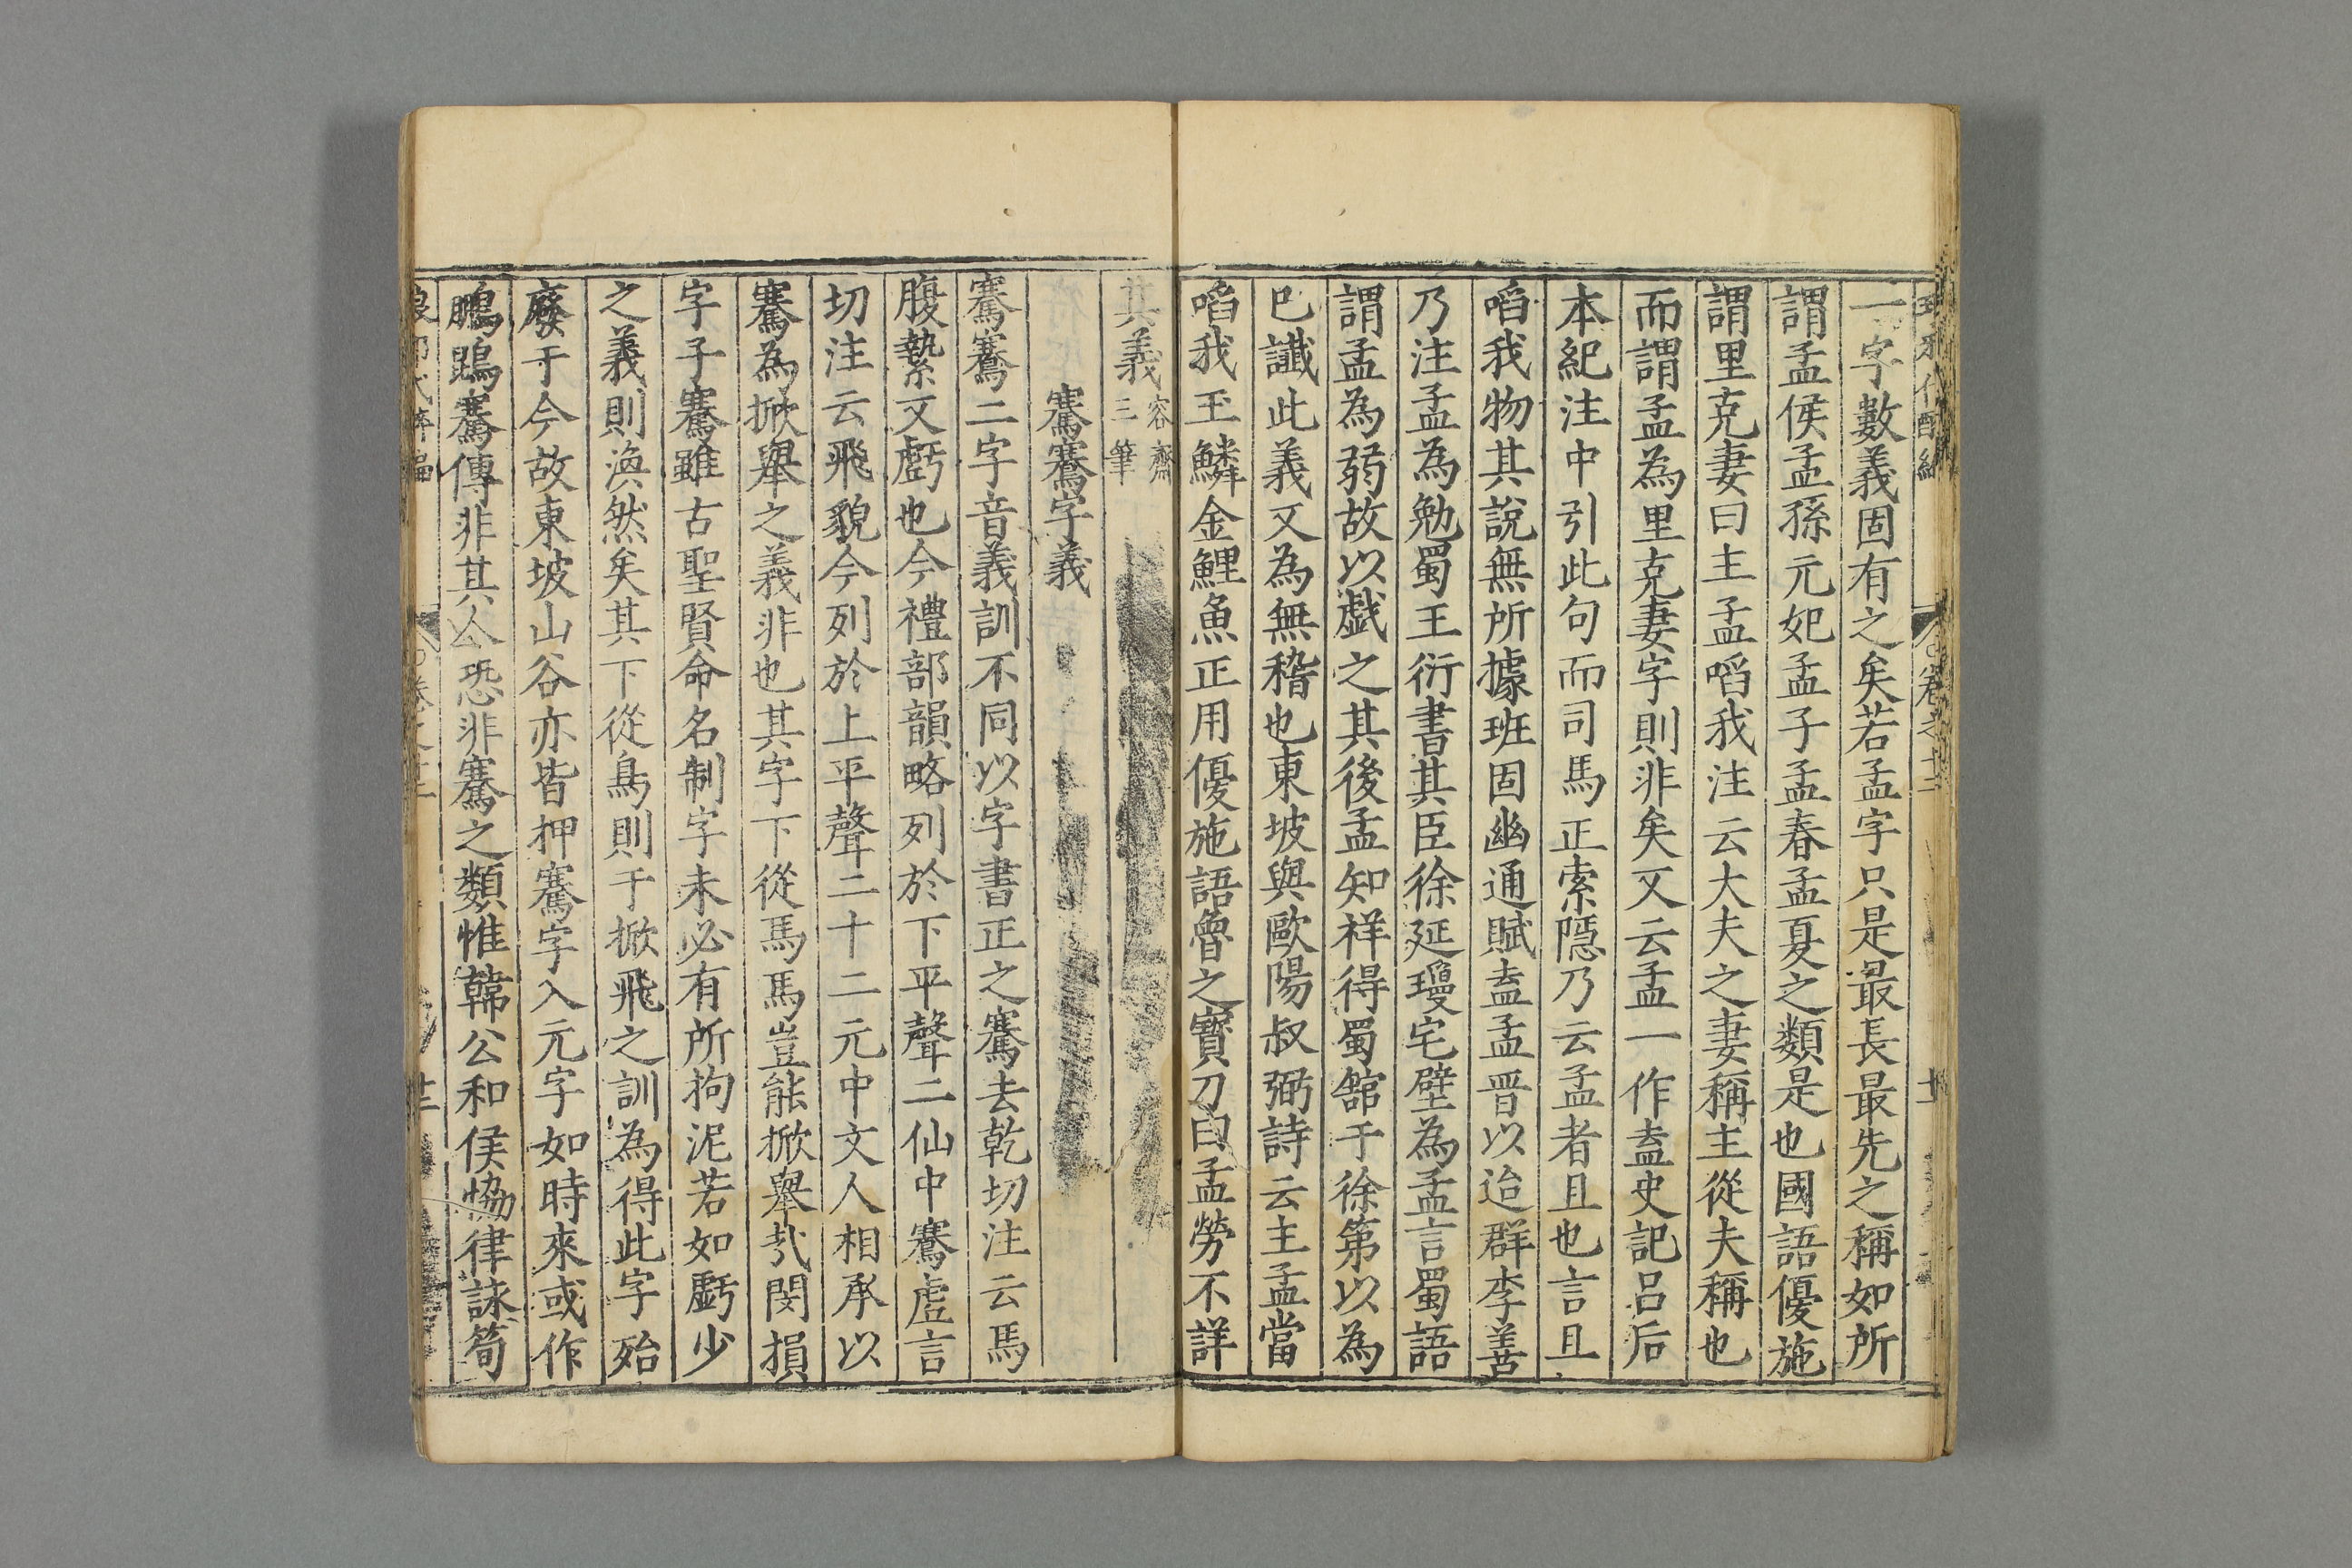 一字數義固有之矣若孟字只是最長最先之稱如所
謂孟侯孟孫元妃孟子孟春孟夏之類是也國語優施
謂里克妻曰主孟啗我注云大夫之妻稱主從夫稱也
而謂孟為里克妻字則非矣又云孟一作盍史記呂后
本紀注中引此句而司馬正索隱乃云孟者且也言且
啗我物其說無所據班固幽通賦盍孟晉以迨群李善
乃注孟為勉蜀王衍書其臣徐延瓊宅壁為孟言蜀語
謂孟為弱故以戲之其後孟知祥得蜀舘于徐第以為
巳讖此義又為無稽也東坡與歐陽叔弼詩云主孟當
啗我玉鱗金鯉魚正用優施語魯之寶刀曰孟勞不詳
其義容齋三筆
騫鶱字義
騫鶱二字音義訓不同以字書正之騫去乾切注云馬
腹縶又虧也今禮部韻略列於下平聲二仙中鶱虛言
切注云飛貌今列於上平聲二十二元中文人相承以
騫為掀舉之義非也其字下從馬馬豈能掀舉㢤閔損
字子騫雖古聖賢命名制字未必有所拘泥若如虧少
之義則渙然矣其下從鳥則于掀飛之訓為得此字殆
廢于今故東坡山谷亦皆押騫字入元字如時來或作
鵬鵾騫傳非其人恐非騫之類惟韓公和侯恊律詠筍